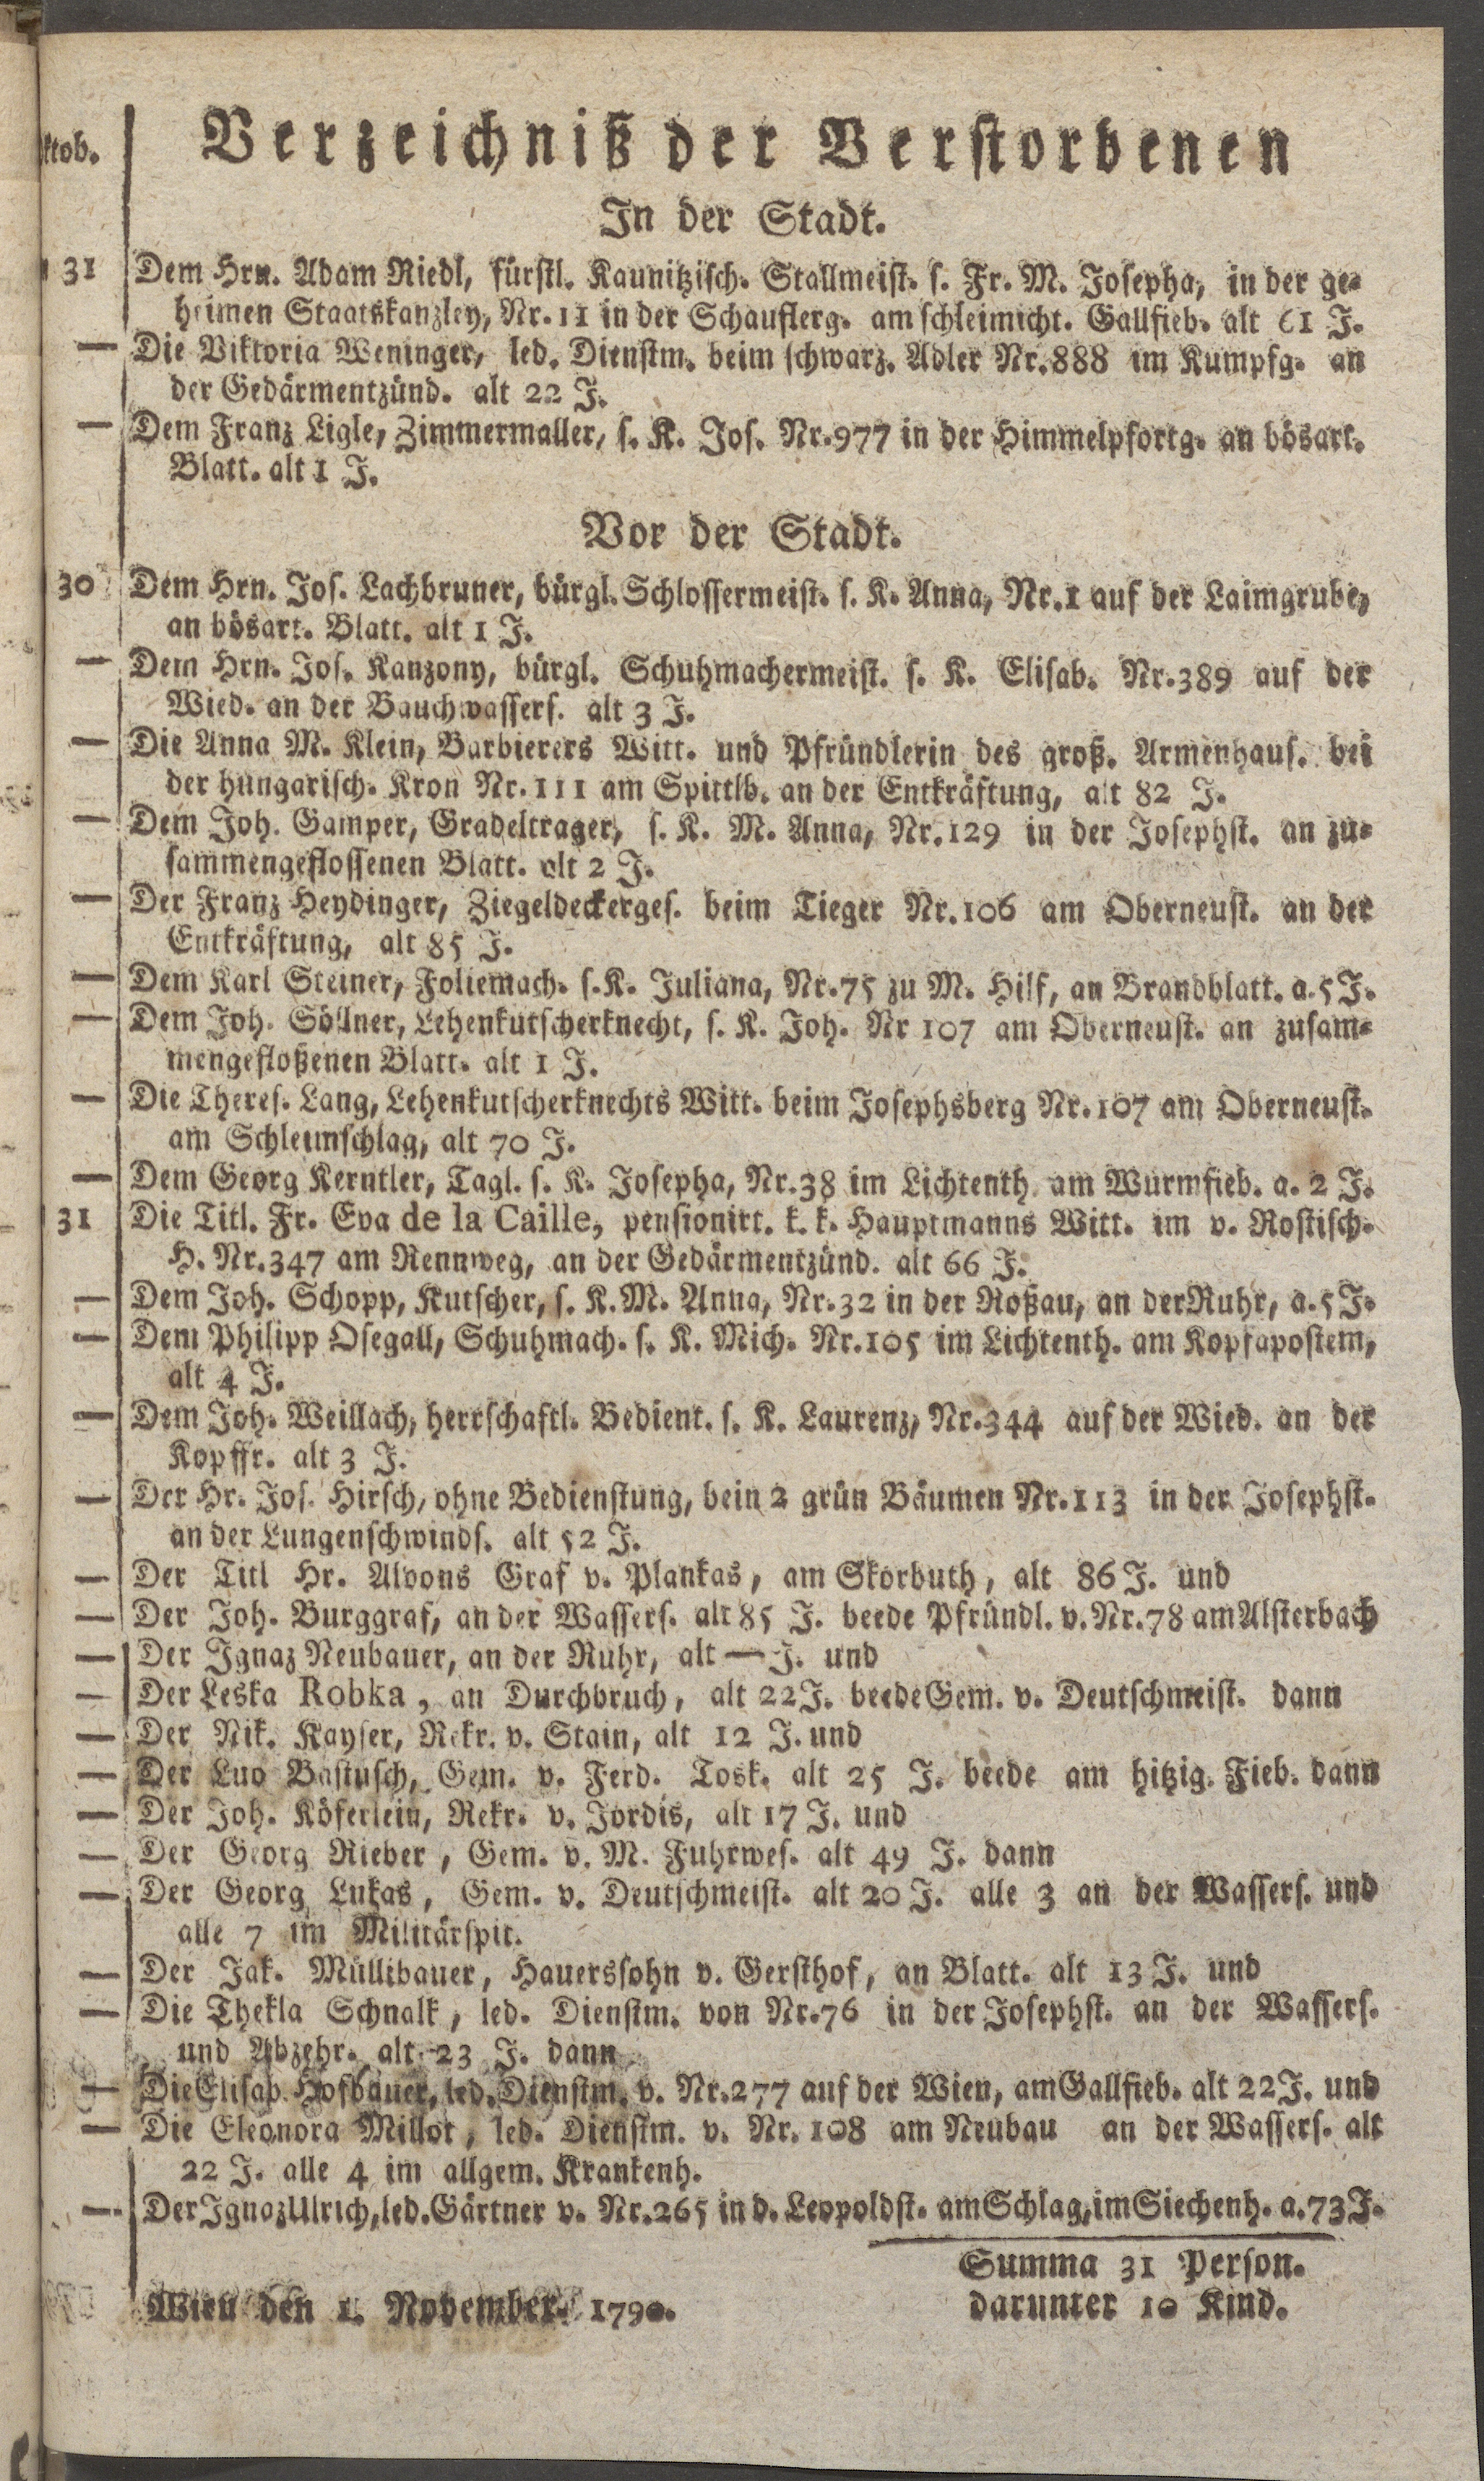 ktob.
Verzeichniß der Verstorbenen
In der Stadt.
31 Dem Hrn. Adam Riedl, fürstl. Kaunitzisch. Stallmeist. s. Fr. M. Josepha, in der ge-
heimen Staatskanzley, Nr. 11 in der Schauflerg. am schleimicht. Gallfieb. alt 61 J.
— Die Viktoria Weninger, led. Dienstm. beim schwarz. Adler Nr. 888 im Kumpfg. an
der Gedärmentzünd. alt 22 J.
— Dem Franz Ligle, Zimmermaller, s. K. Jos. Nr. 977 in der Himmelpfortg. an bösart.
Blatt. alt 1 J.
Vor der Stadt.
30 Dem Hrn. Jos. Lachbruner, bürgl. Schlossermeist. s. K. Anna, Nr. 1 auf der Laimgrube,
an bösart. Blatt. alt 1 J.
— Dem Hrn. Jos. Kanzony, bürgl. Schuhmachermeist. s. K. Elisab. Nr. 389 auf der
Wied. an der Bauchwassers. alt 3 J.
— Die Anna M. Klein, Barbierers Witt. und Pfründlerin des groß. Armenhaus. bei
der hungarisch. Kron Nr. 111 am Spittlb. an der Entkräftung, alt 82 J.
— Dem Joh. Gamper, Gradeltrager, s. K. M. Anna, Nr. 129 in der Josephst. an zu-
sammengeflossenen Blatt. alt 2 J.
— Der Franz Heydinger, Ziegeldeckerges. beim Tieger Nr. 106 am Oberneust. an der
Entkräftung, alt 85 J.
— Dem Karl Steiner, Foliemach. s. K. Juliana, Nr. 75 zu M. Hilf, an Brandblatt. a. 5 J.
— Dem Joh. Söllner, Lehenkutscherknecht, s. K. Joh. Nr 107 am Oberneust. an zusam-
mengefloßenen Blatt. alt 1 J.
— Die Theres. Lang, Lehenkutscherknechts Witt. beim Josephsberg Nr. 107 am Oberneust.
am Schleimschlag, alt 70 J.
— Dem Georg Kerntler, Tagl. s. K. Josepha, Nr. 38 im Lichtenth. am Wurmfieb. a. 2 J.
31 Die Titl. Fr. Eva de la Caille, pensionirt. k. k. Hauptmanns Witt. im v. Rostisch.
H. Nr. 347 am Rennweg, an der Gedärmentzünd. alt 66 J.
— Dem Joh. Schopp, Kutscher, s. K. M. Anna, Nr. 32 in der Roßau, an der Ruhr, a. 5 J.
— Dem Philipp Osegall, Schuhmach. s. K. Mich. Nr. 105 im Lichtenth. am Kopfapostem,
alt 4 J.
— Dem Joh. Weillach, herrschaftl. Bedient. s. K. Laurenz, Nr. 344 auf der Wied. an der
Kopffr. alt 3 J.
— Der Hr. Jos. Hirsch, ohne Bedienstung, bein 2 grün Bäumen Nr. 113 in der Josephst.
an der Lungenschwinds. alt 52 J.
— Der Titl Hr. Alvons Graf v. Plankas, am Skorbuth, alt 86 J. und
— Der Joh. Burggraf, an der Wassers. alt 85 J. beede Pfründl. v. Nr. 78 am Alsterbach
— Der Ignaz Neubauer, an der Ruhr, alt — J. und
— Der Leska Robka, an Durchbruch, alt 22 J. beede Gem. v. Deutschmeist. dann
— Der Nik. Kayser, Rekr. v. Stain, alt 12 J. und
— Der Luo Bastusch, Gem. v. Ferd. Tosk. alt 25 J. beede am hitzig. Fieb. dann
— Der Joh. Köferlein, Rekr. v. Jordis, alt 17 J. und
— Der Georg Rieber, Gem. v. M. Fuhrwes. alt 49 J. dann
— Der Georg Lukas, Gem. v. Deutschmeist. alt 20 J. alle 3 an der Wassers. und
alle 7 im Militärspit.
— Der Jak. Müllibauer, Hauerssohn v. Gersthof, an Blatt. alt 13 J. und
— Die Thekla Schnalk, led. Dienstm. von Nr. 76 in der Josephst. an der Wassers.
und Abzehr. alt 23 J. dann
— Die Elisab. Hofbauer, led. Dienstm. v. Nr. 277 auf der Wien, am Gallfieb. alt 22 J. und
— Die Eleonora Millot, led. Dienstm. v. Nr. 108 am Neubau an der Wassers. alt
22 J. alle 4 im allgem. Krankenh.
— Der Ignaz Ulrich, led. Gärtner v. Nr. 265 in d. Leopoldst. am Schlag, im Siechenh. a. 73 J.
Summa 31 Person.
darunter 10 Kind.
Wien den 1. November. 1790.